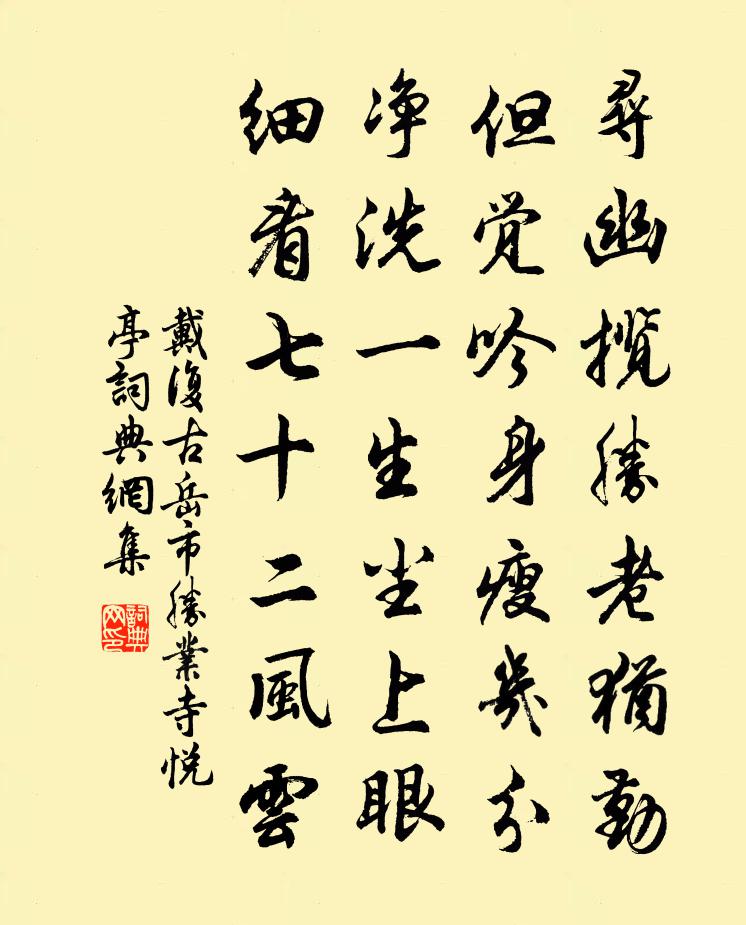 尋幽攬勝老猶勤
但觉吟身瘦幾分
净洗一生尘上眼
细看七十二風雲
戴復古岳市勝業寺悦
亭詞典網集
詞典
网印